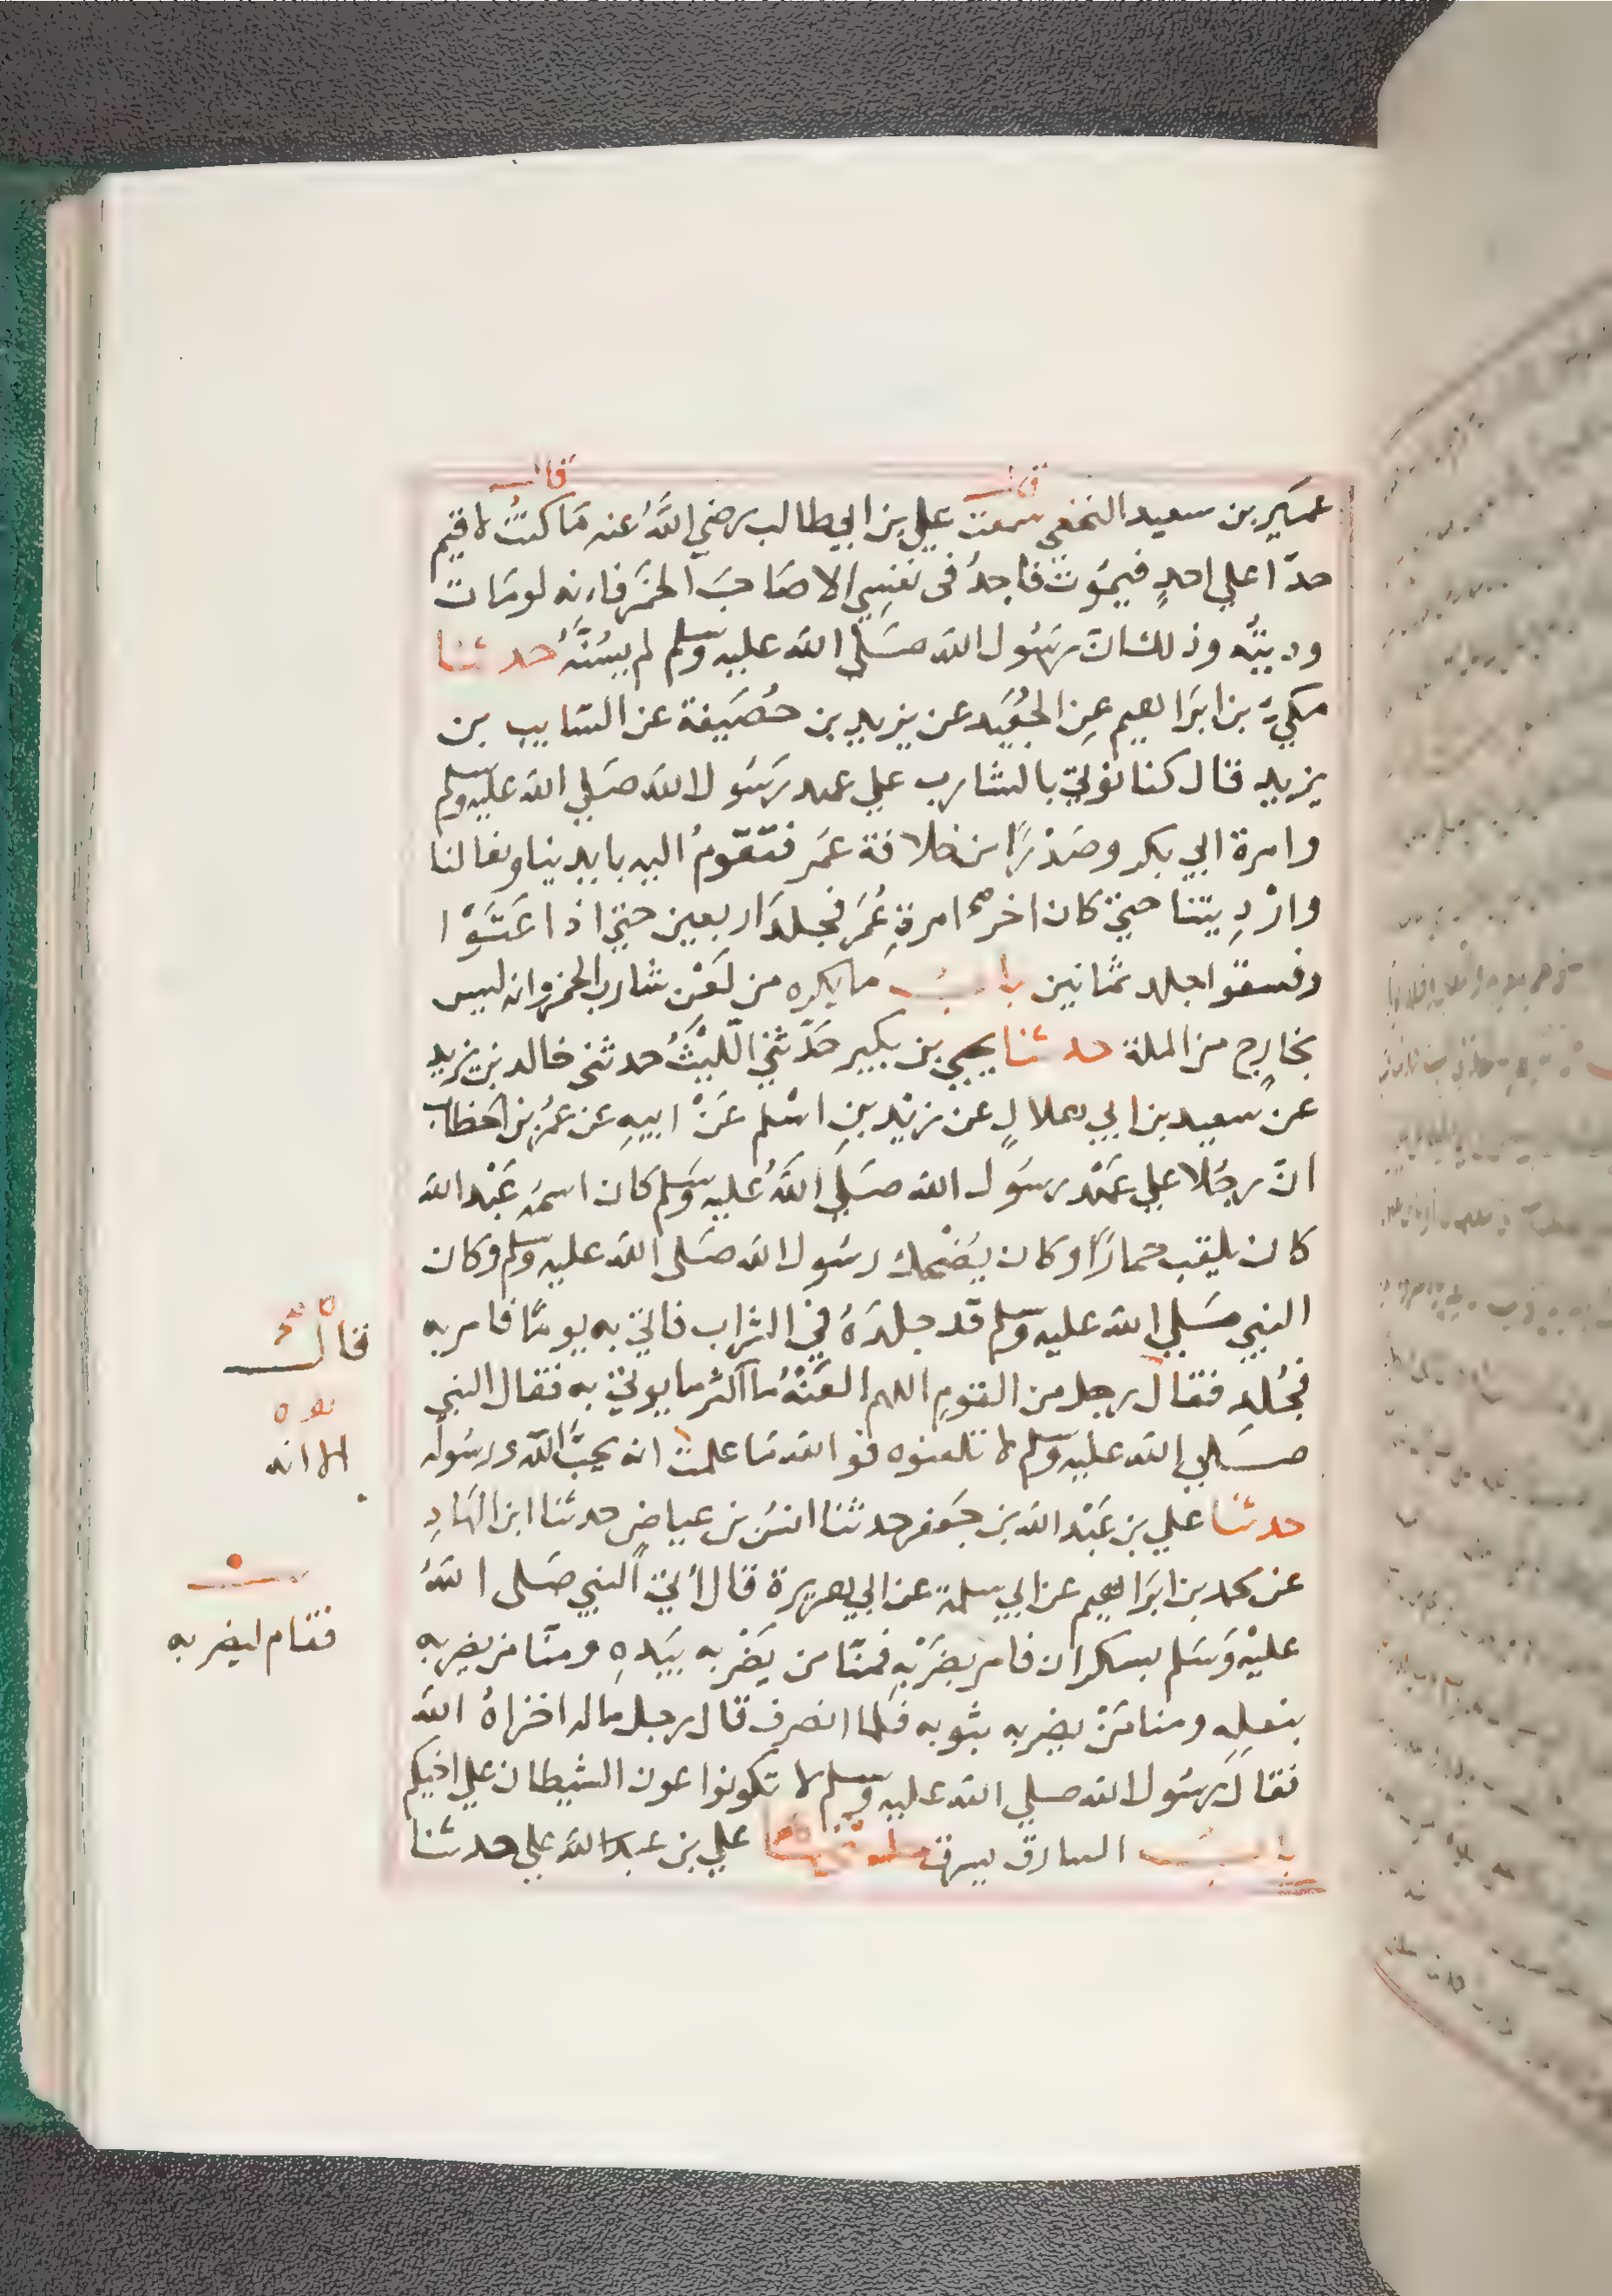 قال قال
عمَير بن سعيد النخعي سمعت علي بن ابي طالب رضي اللَّهُ عنه مَا كنتُ لاقيم
حدّا علي احدٍ فيمَوتَ فاجدُ فى نفسِي الا صَاحبَ الخمَر فانه لو مَات
وديتُه وذلك ان رسَُول الله صَلى الله عليه وسلم لم يسُنَّهُ حدثنا
مكيّ بن ابرَاهيم عِن الجُعَيد عن يزيد بن خصَيفة عن السَايب بن
يزيد قال كنا نؤتي بالشارب علي عهد رَسَول الله صَلي الله عليه وسلم
وامرة ابي بكر وصَدْرًا من خلافة عمَر فنَقومُ اليه بايدينا ونعالنا
وارْدِيتنا حتي كان اخر امرةِ عُمَر فجلدَ اربعين حتي اذا عَتَوْا
وفسقوا جلد ثمانين بابُ ما يكره من لَعْن شارب الخمر وانه ليس
بخارجٍ من الملة حدثنا يحيي بن بكير حَدّثني اللّيْثُ حدثنى خالد بن يزيد
عن سعيد بن ابي هلالٍ عن زيْد بنِ اسْلم عَنْ ابيهِ عن عمُر بن الخطاب
انّ رجُلا علي عَهْد رسَول الله صَلي اللَّهُ عليه وسَلم كان اسمُه عَبْد الله
كان يلقب حمارًا وكان يضْحك رسَول الله صَلى الله عليه وسلم وكان
النبي صَلي الله عليه وسلم قد جلدَهُ في الشراب فاتي به يومًا فامر به
فجُلِد فقال رجل من القومِ اللهم العَنْهُ ما اكثر ما يوتي به فقال النبى
صَلي الله عليه وسلم لا تلعنوه فوالله مَا علمت انه يحبُّ اللّه ورسَوله
حدثنا علي بن عَبْد الله بن جَعفر حدثنا انسُ بن عياضٍ حدثنا ابن الهَادِ
عن محمد بن ابرَاهيم عن ابي سلمة عن ابي هريرة قال اُتي النبي صَلى اللهُ
عليْه وَسَلم بسكران فامر بضَرْبهِ فمنّا من يضَرْبه بيَدهِ ومنّا من يضربه
بنعلِهِ ومنا مَنْ يضربه بثوبه فلَما انصرف قال رجل ماله اخزاهُ الله
فقال رسَول الله صلي الله عليه وسلم لا تكونوا عون الشيطان علي اخيكم
بابُ السارق يسرق علي بن عبد الله علي حدثنا
قال
الا انه
فقام ليضربه